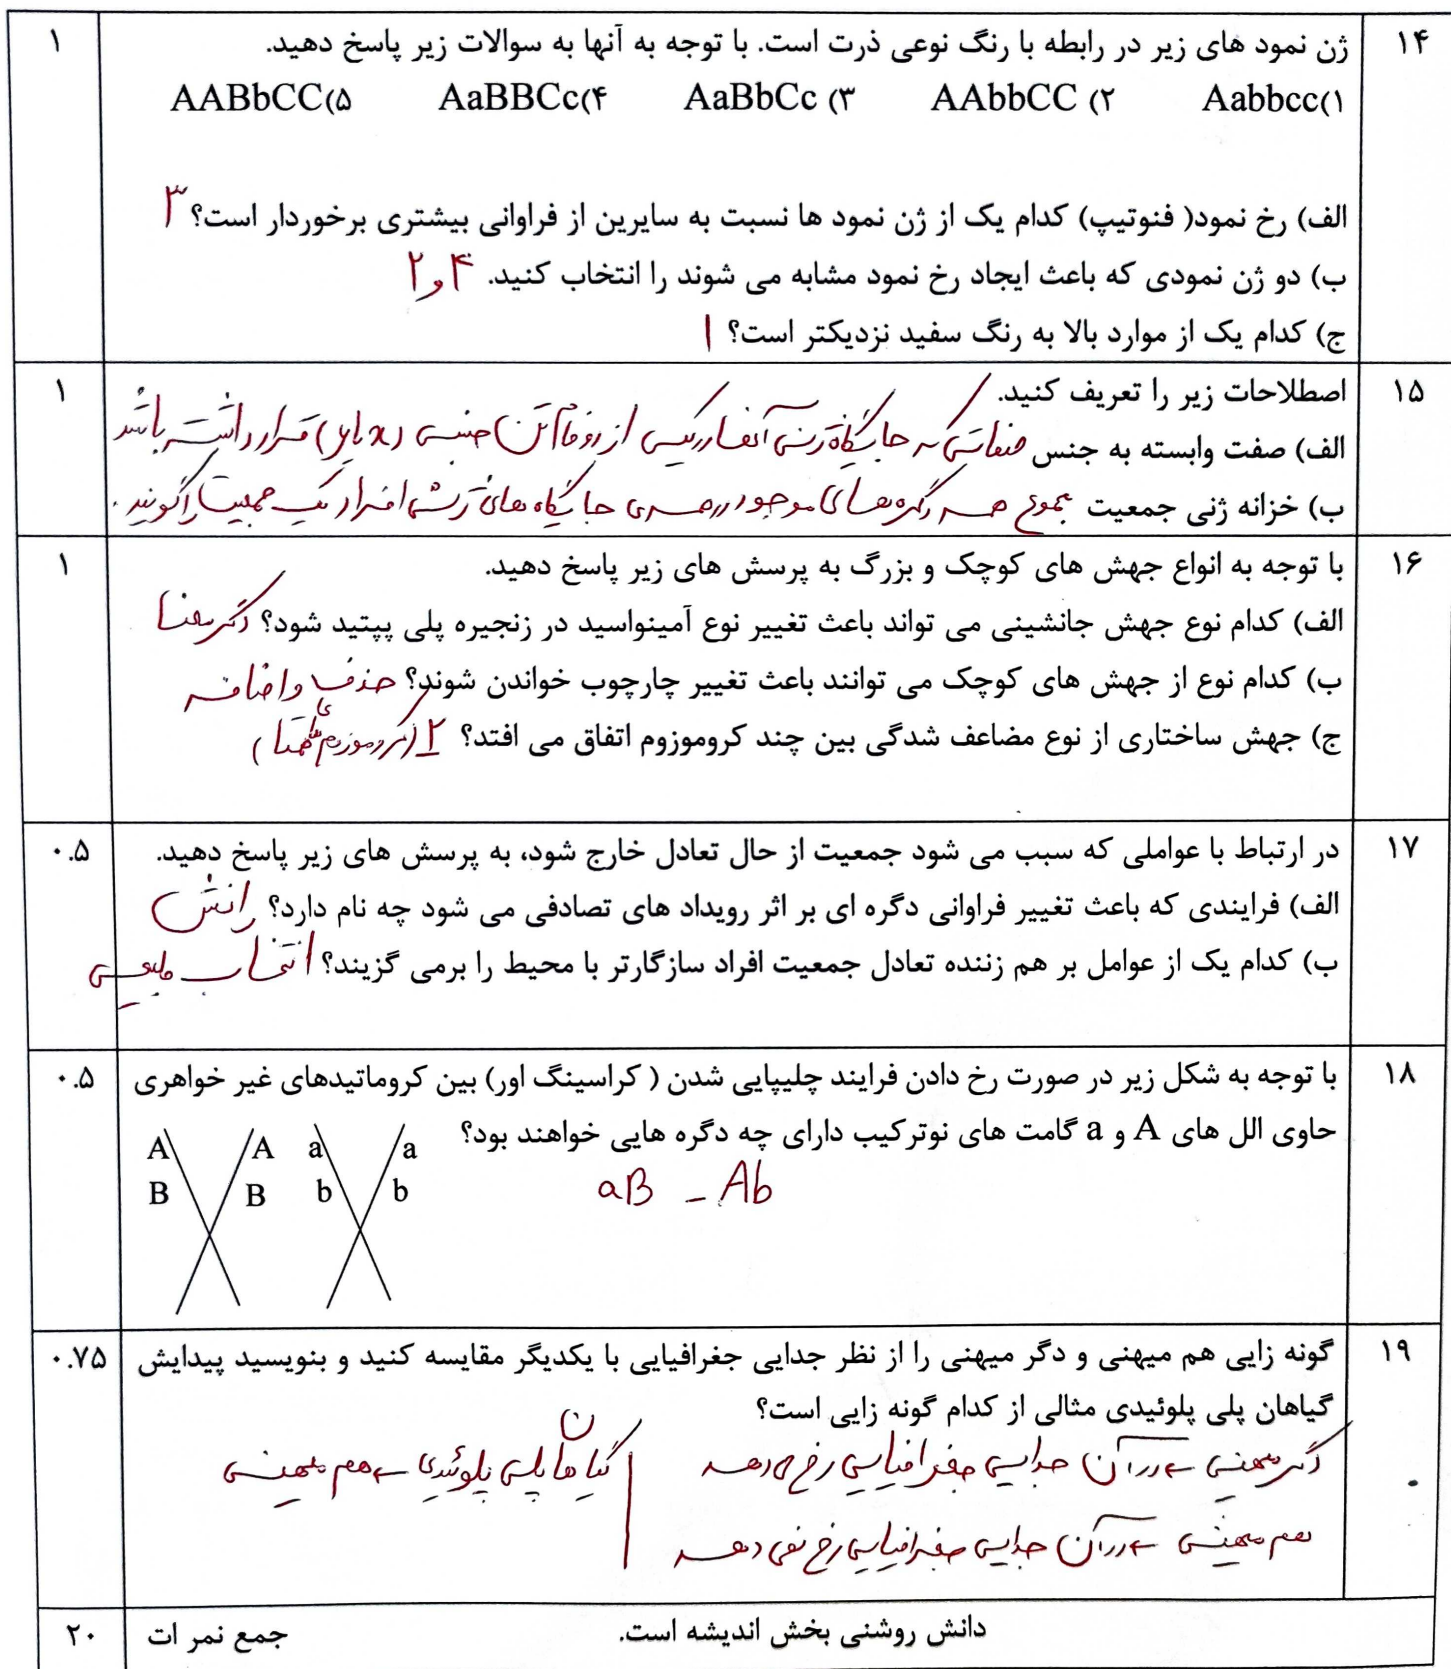 ۱۴ ژن نمود های زیر در رابطه با رنگ نوعی ذرت است. با توجه به آنها به سوالات زیر پاسخ دهید. ۱
Aabbcc(۱ AAbbCC (۲ AaBbCc (۳ AaBBCc(۴ AABbCC(۵
الف) رخ نمود( فنوتیپ) کدام یک از ژن نمود ها نسبت به سایرین از فراوانی بیشتری برخوردار است؟ ۳
ب) دو ژن نمودی که باعث ایجاد رخ نمود مشابه می شوند را انتخاب کنید. ۴ و ۲
ج) کدام یک از موارد بالا به رنگ سفید نزدیکتر است؟ ۱
۱۵ اصطلاحات زیر را تعریف کنید. ۱
الف) صفت وابسته به جنس صفاتی که جایگاه ژنی آنها در یکی از دو فام تن جنسی (x یا y) قرار داشته باشد
ب) خزانه ژنی جمعیت مجموع همه دگره های موجود در همه ی جایگاه های ژنی افراد یک جمعیت را گویند.
۱۶ با توجه به انواع جهش های کوچک و بزرگ به پرسش های زیر پاسخ دهید. ۱
الف) کدام نوع جهش جانشینی می تواند باعث تغییر نوع آمینواسید در زنجیره پلی پپتید شود؟ دگر معنا
ب) کدام نوع از جهش های کوچک می توانند باعث تغییر چارچوب خواندن شوند؟ حذف و اضافه
ج) جهش ساختاری از نوع مضاعف شدگی بین چند کروموزوم اتفاق می افتد؟ ۲ (کروموزوم های همتا)
۱۷ در ارتباط با عواملی که سبب می شود جمعیت از حال تعادل خارج شود، به پرسش های زیر پاسخ دهید. ۰.۵
الف) فرایندی که باعث تغییر فراوانی دگره ای بر اثر رویداد های تصادفی می شود چه نام دارد؟ رانش
ب) کدام یک از عوامل بر هم زننده تعادل جمعیت افراد سازگارتر با محیط را برمی گزیند؟ انتخاب طبیعی
۱۸ با توجه به شکل زیر در صورت رخ دادن فرایند چلیپایی شدن ( کراسینگ اور) بین کروماتیدهای غیر خواهری ۰.۵
حاوی الل های A و a گامت های نوترکیب دارای چه دگره هایی خواهند بود؟
A A a a
B B b b
aB - Ab
۱۹ گونه زایی هم میهنی و دگر میهنی را از نظر جدایی جغرافیایی با یکدیگر مقایسه کنید و بنویسید پیدایش ۰.۷۵
گیاهان پلی پلوئیدی مثالی از کدام گونه زایی است؟
دگر میهنی ← در آن جدایی جغرافیایی رخ می دهد
گیاهان پلی پلوئیدی ← هم میهنی
هم میهنی ← در آن جدایی جغرافیایی رخ نمی دهد
دانش روشنی بخش اندیشه است. جمع نمر ات ۲۰